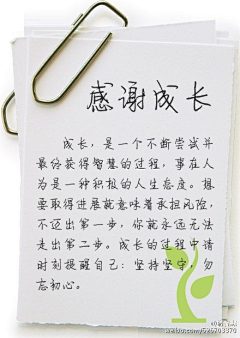 感谢成长
成长，是一个不断尝试并
最终获得智慧的过程，事在人
为是一种积极的人生态度。想
要取得进展就意味着承担风险，
不迈出第一步，你就永远无法
走出第二步。成长的过程中请
时刻提醒自己：坚持坚守，勿
忘初心。